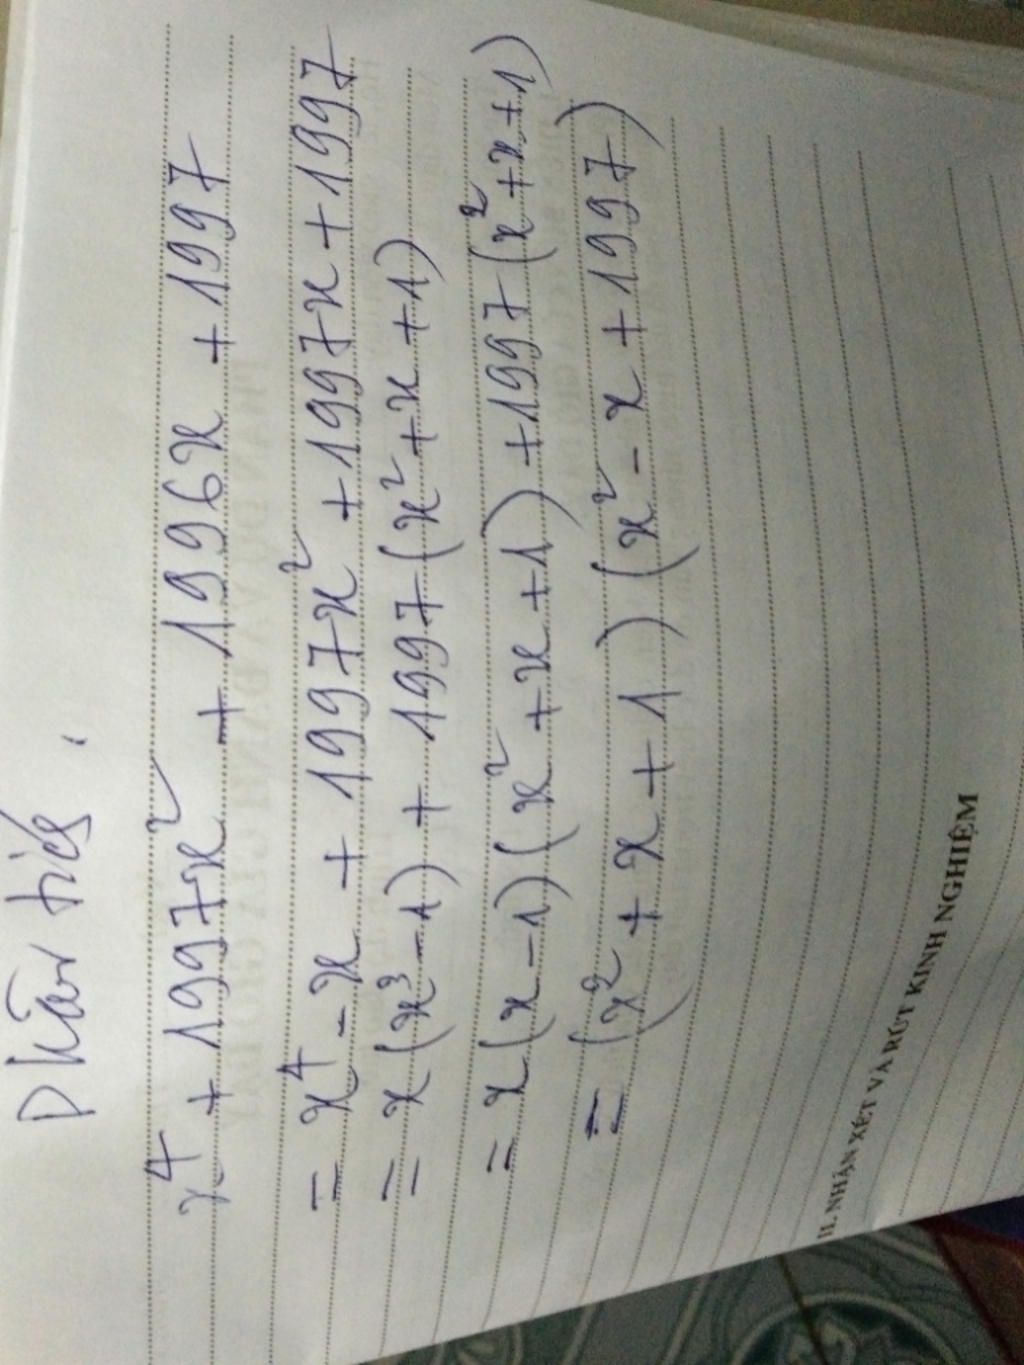 Phân tích
x⁴ + 1997x² + 1996x + 1997
= x⁴ - x + 1997x² + 1997x + 1997
= x(x³ - 1) + 1997(x² + x + 1)
= x(x - 1)(x² + x + 1) + 1997(x² + x + 1)
= (x² + x + 1)(x² - x + 1997)
II. NHẬN XÉT VÀ RÚT KINH NGHIỆM